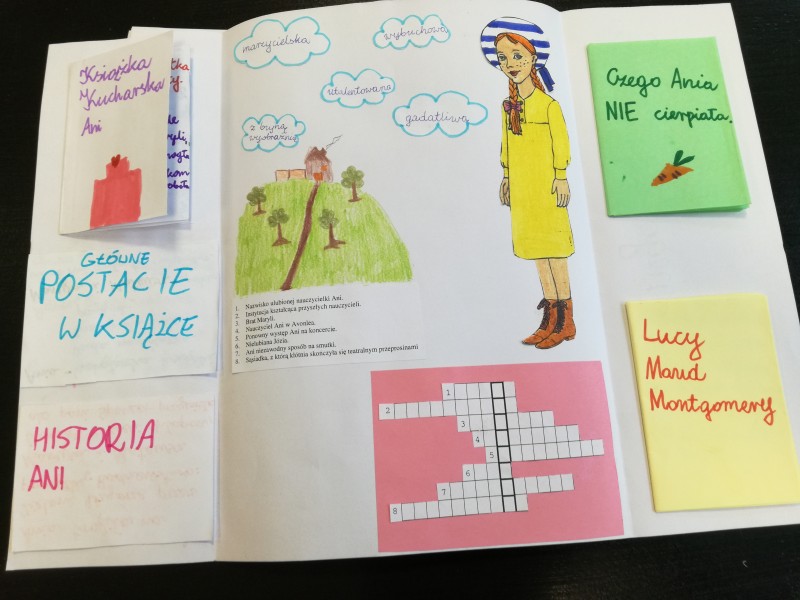 Książka
Kucharska
Ani
GŁÓWNE
POSTACIE
W KSIĄŻCE
HISTORIA
ANI
marzycielska
wybuchowa
utalentowana
gadatliwa
z bujną
wyobraźnią
1. Nazwisko ulubionej nauczycielki Ani.
2. Instytucja kształcąca przyszłych nauczycieli.
3. Brat Maryli.
4. Nauczyciel Ani w Avonlea.
5. Popisowy występ Ani na koncercie.
6. Nielubiana Józia.
7. Ani niezawodny sposób na smutki.
8. Sąsiadka, z którą kłótnia skończyła się teatralnym przeprosinami
1
2
3
4
5
6
7
8
Czego Ania
NIE cierpiała.
Lucy
Maud
Montgomery